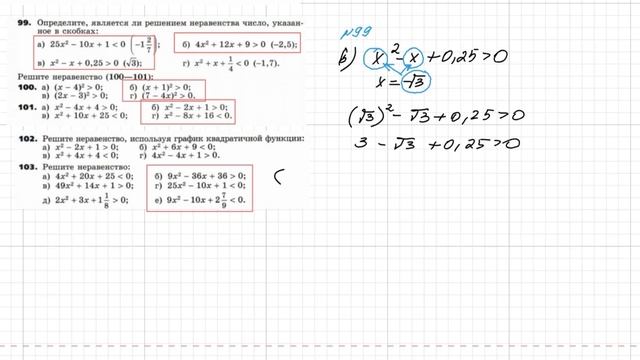 99. Определите, является ли решением неравенства число, указан-
ное в скобках:
а) 25x² − 10x + 1 < 0 (−1 2/7); б) 4x² + 12x + 9 > 0 (−2,5);
в) x² − x + 0,25 > 0 (√3); г) x² + x + 1/4 < 0 (−1,7).
Решите неравенство (100—101):
100. а) (x − 4)² > 0; б) (x + 1)² > 0;
в) (2x − 3)² > 0; г) (7 − 4x)² > 0.
101. а) x² − 4x + 4 > 0; б) x² − 2x + 1 > 0;
в) x² + 10x + 25 < 0; г) x² − 8x + 16 < 0.
102. Решите неравенство, используя график квадратичной функции:
а) x² − 2x + 1 > 0; б) x² + 6x + 9 < 0;
в) x² + 4x + 4 < 0; г) 4x² − 4x + 1 > 0.
103. Решите неравенство:
а) 4x² + 20x + 25 < 0; б) 9x² − 36x + 36 > 0;
в) 49x² + 14x + 1 > 0; г) 25x² − 10x + 1 < 0;
д) 2x² + 3x + 1 1/8 > 0; е) 9x² − 10x + 2 7/9 < 0.
№99
в) x² − x + 0,25 > 0
x = √3
(√3)² − √3 + 0,25 > 0
3 − √3 + 0,25 > 0